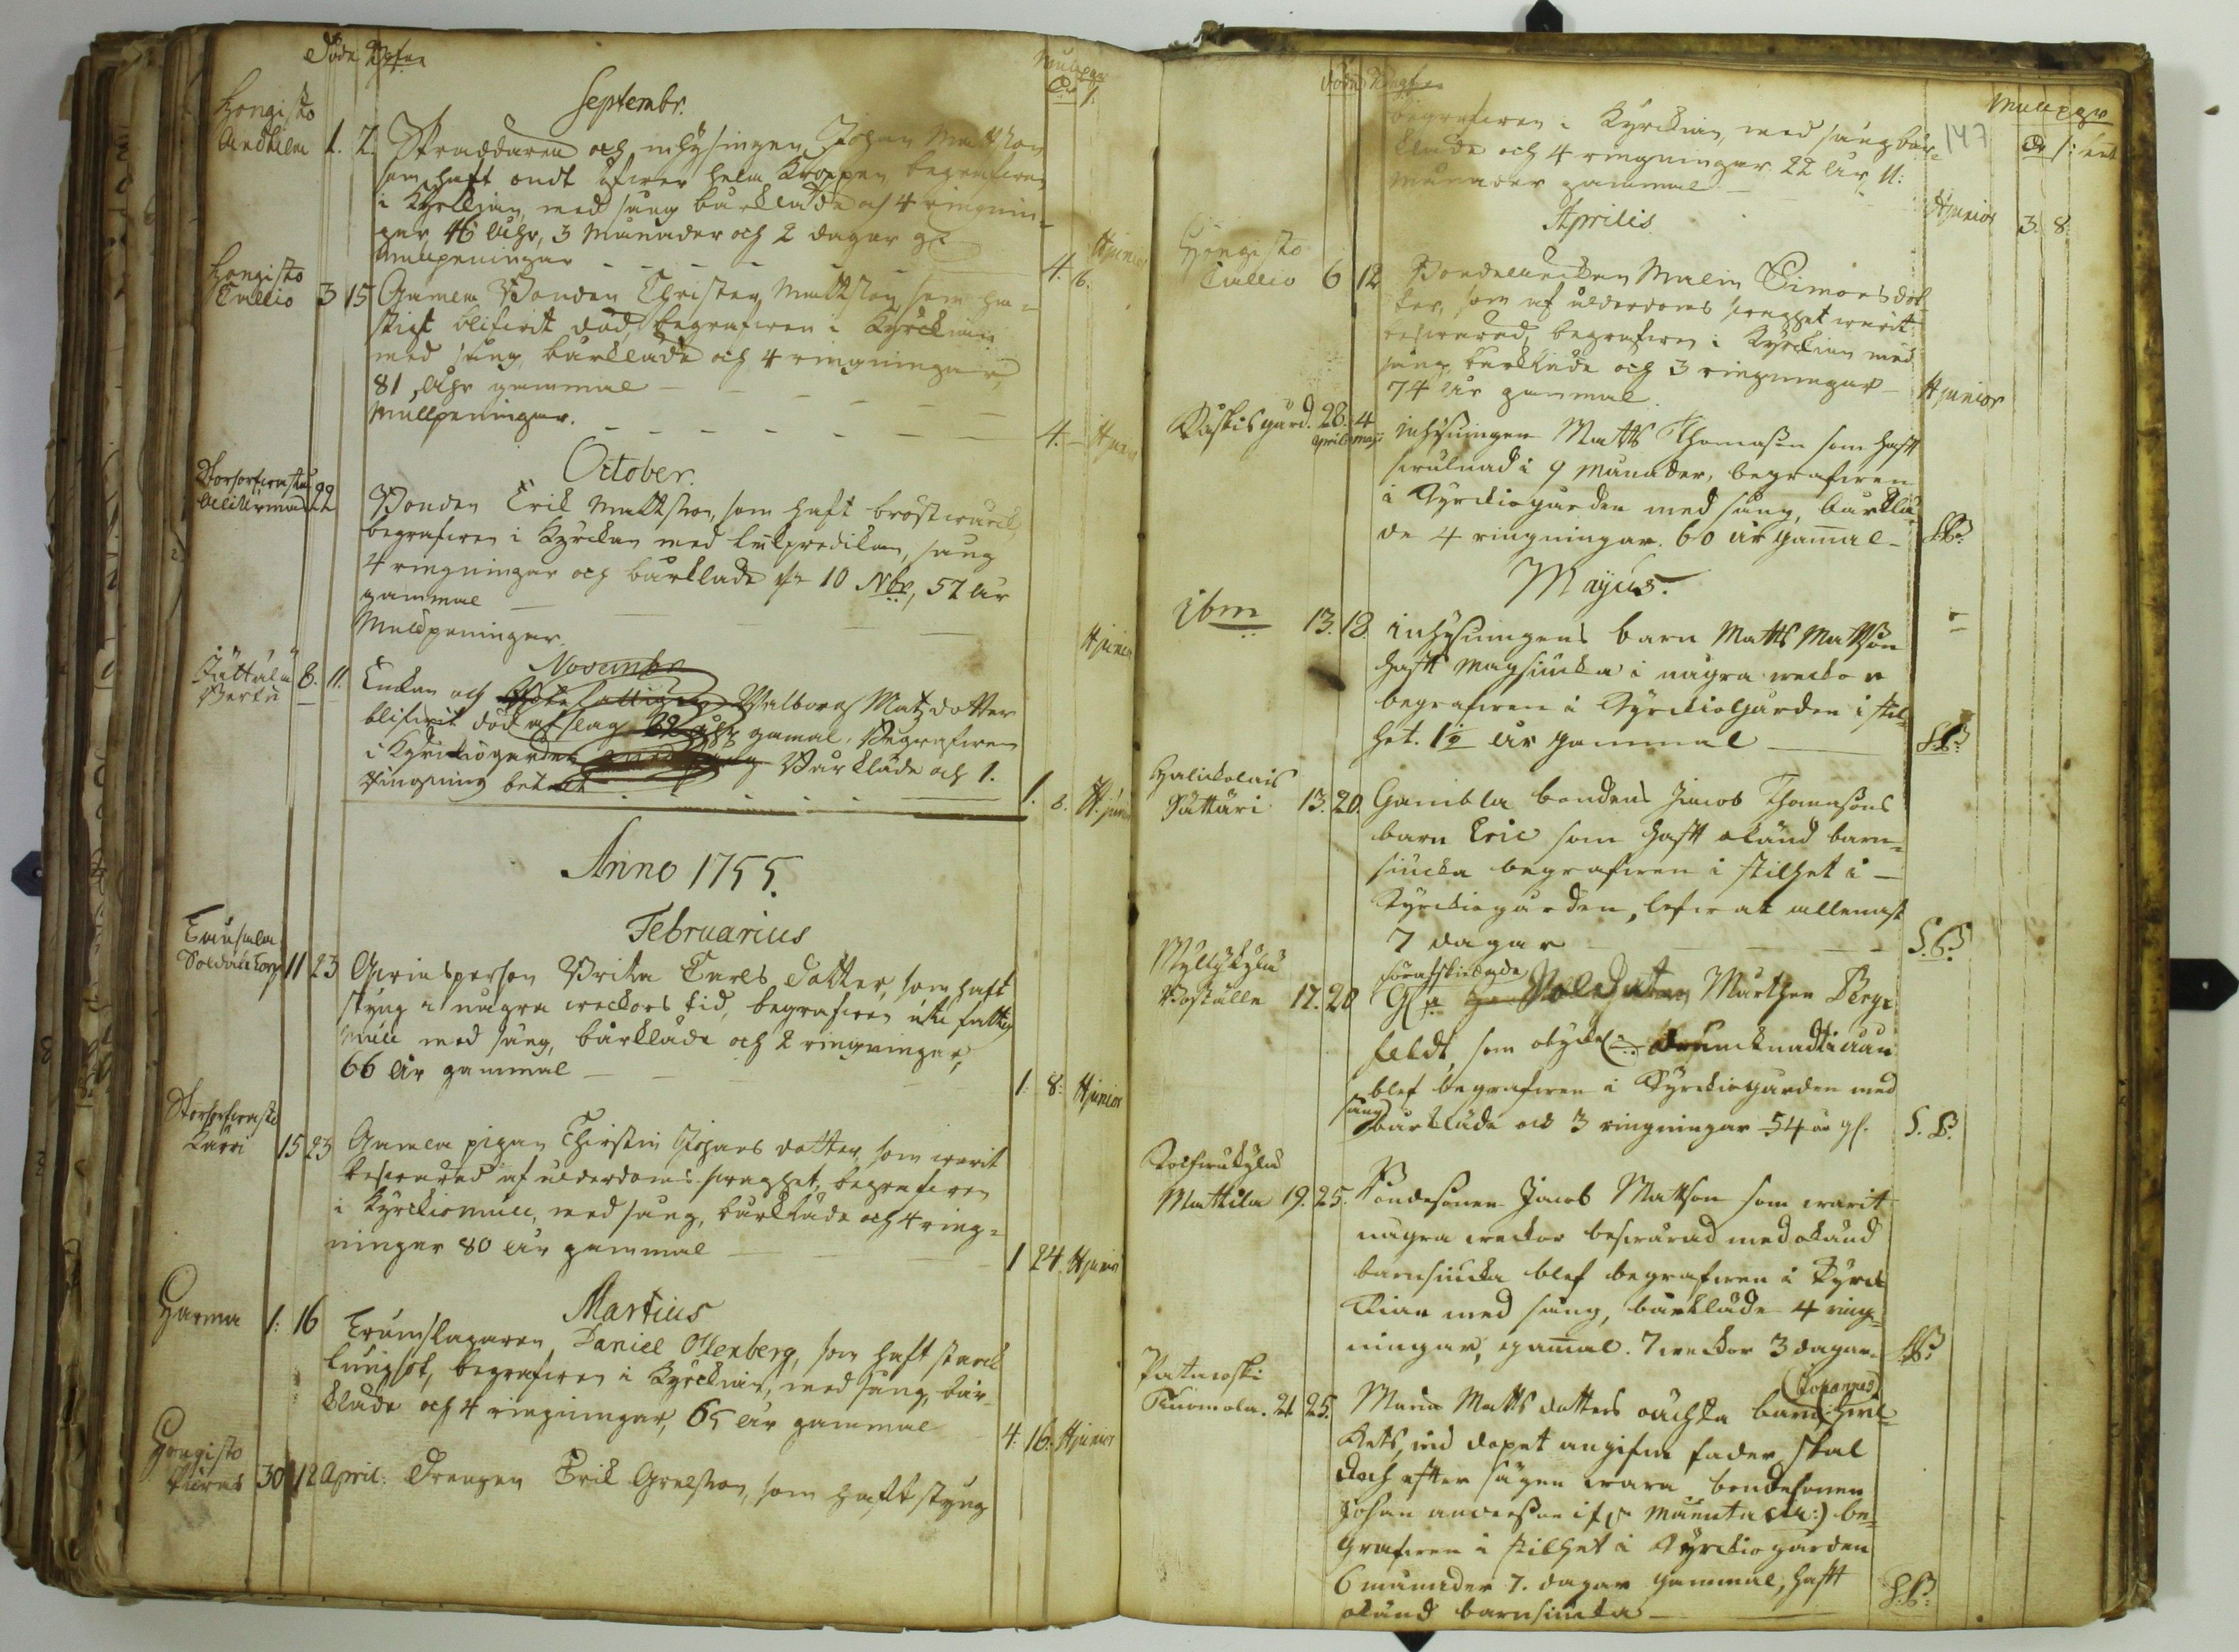 Döde Begrafne
Mullpgr
Dr /:
Septembr.
Hongisto
Andhila 1. 2. Skräddaren och inhysingen Johan Mattsson
som haft ondt öfwer hela Kroppen begrafwen
i Kyrckian, med sång bårkläde och 4 ringnin-
gar, 46 Åhr, 3 Månader och 2 dagar gl
Mullpeningar 4. 16. H junior
Hongisto
Tullio 3 15 Gamla Bonden Christer Mattsson, som ha-
stigt blifwit död, begrafwen i Kyrckian
med sång, bårkläde och 4 ringningar,
81, Åhr gammal
Mullpeningar. 4. H junior
October.
22 Bonden Erik Mattsson, som haft bröstwärck,
begrafwen i Kyrckan med likpredikan, sång
4 ringningar och bårkläde d. 10 Nbr, 52 år
gammal
Muldpeningar. H junior
Novembr
8. 11. Enkan och Walborg Matzdotter
blifwit död af slag gamal, Begrafwen
i Kyrckiogården Bårkläde och 1.
Ringning betalt 1. 8. H. junior
Anno 1755.
Februarius
Soldate torp 11 23 Qwinsperson Brita Carls dotter, som haft
styng i några weckors tid, begrafwen uti fattig
mull med sång, bårkläde och 2 ringningar,
66 år gammal 1: 8: H junior
Karri 15 23 Gamla pigan Christin Johans dotter, som warit
beswärad af ålderdoms swaghet, begrafwen
i Kyrckiomull, med sång, bårkläde och 4 ring-
ningar 80 år gammal 1 24 H junior
Martius
Harma 1: 16 Trumslagaren Daniel Ollenberg, som haft starck
lungsot, begrafwen i Kyrckian, med sång, bår-
kläde och 4 ringningar, 65 år gammal 4: 16. H junior
Hongisto
30 12 April: Drengen Erik Grelsson, som haft styng
Döde Begrafne
Mullpgr
147
Dr /:
begrafwen i Kyrckian, med sång bår-
kläde och 4 ringningar 22 år, 11:
månader gammal H junior 3. 8.
Aprilis.
Hongisto
Tullio 6 12 Bondeänckan Malin Simonsdot-
ter, som af ålderdoms swaghet warit
beswärad, begrafwen i Kyrckian med
sång, bårkläde och 3 ringningar
74 år gammal. H junior
Kåskisgård. 28. 4
April Maji inhysingen Matts Thomasson som hafft
swulnad i 9 månader, begrafwen
i Kyrckiogården med sång, bårklä-
de 4 ringningar. 60 år gamal
Majus.
ibm 13. 18 inhysingens barn Matts Mattsson
hafft magsiucka i några weckor
begrafwen i Kyrckiogården i stil-
het. 1½ år gammal
Halickolais
Sattäri 13. 20. Gambla bondens Jacob Thomassons
barn Eric som hafft okänd barn-
siucka begrafwen i stilhet i
Kyrckiogården, lefwat allenast
7 dagar S. B.
Myllykylä
17. 20 Gl. Soldaten Mårthen Berg-
feldt, som drunknadt i åån
blef begrafwen i Kyrckiogården med
sång bårkläde och 3 ringningar 54 år gl. S. B.
Mattila 19. 25. Bondesonen Jacob Mattson som warit
några weckor beswärad med okänd
barnsiucka blef begrafwen i Kyrck
kian med sång, bårkläde 4 ring-
ningar, gamal. 7 weckor 3 dagar
Kuomola. 21 25. Maria Matts dotters oächta barn (Johannes) hwil-
kets, wid dopet angifne fader skal
doch efter sägen wara bondesonen
Johan Andersson ifr. Mäentaka:) be-
grafwen i stilhet i Kyrckiogården
6 månader 7. dagar gammal, hafft
okänd barnsiucka